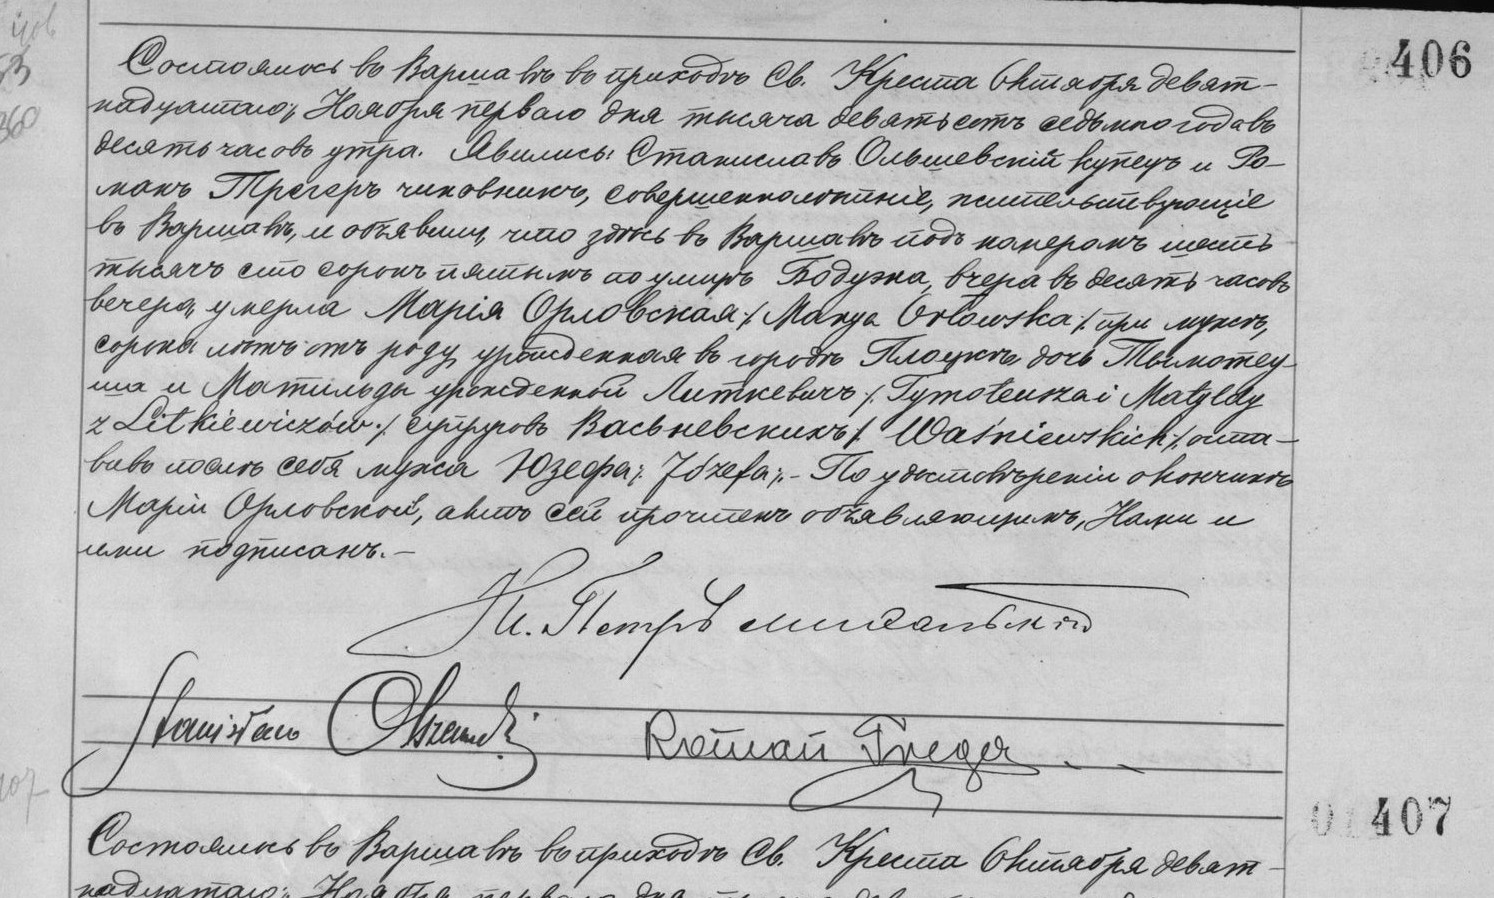 406
Состоялось въ Варшавѣ въ приходѣ Св. Креста Октября девят-
надцатаго/ Ноября перваго дня тысяча девятьсотъ седьмого года въ
десять часовъ утра. Явились: Станиславъ Ольшевскій купецъ и Ро-
манъ Трегеръ чиновникъ, совершеннолѣтніе, жительствующіе
въ Варшавѣ, и объявили, что здѣсь въ Варшавѣ подъ номеромъ шесть
тысячъ сто сорокъ пятымъ по улицѣ Бодуэна, вчера въ десять часовъ
вечера, умерла Марія Орловская /: Marya Orłowska :/ при мужѣ,
сорока лѣтъ отъ роду, урожденная въ городѣ Плоцкѣ дочь Тымотеу-
ша и Матильды урожденной Литкевичъ /: Tymoteusza i Matyldy
z Litkiewiczów :/ супруговъ Васьневскихъ /: Waśniewskich :/ оста-
вивъ послѣ себя мужа Юзефа /: Józefa :/ - По удостовѣреніи о кончинѣ
Маріи Орловской, актъ сей прочтенъ объявляющимъ, Нами и
ими подписанъ. -
Кс. Петръ
Stanisław Olszewski
Roman Treger
407
Состоялось въ Варшавѣ въ приходѣ Св. Креста Октября девят-
надцатаго/ Ноября перваго дня